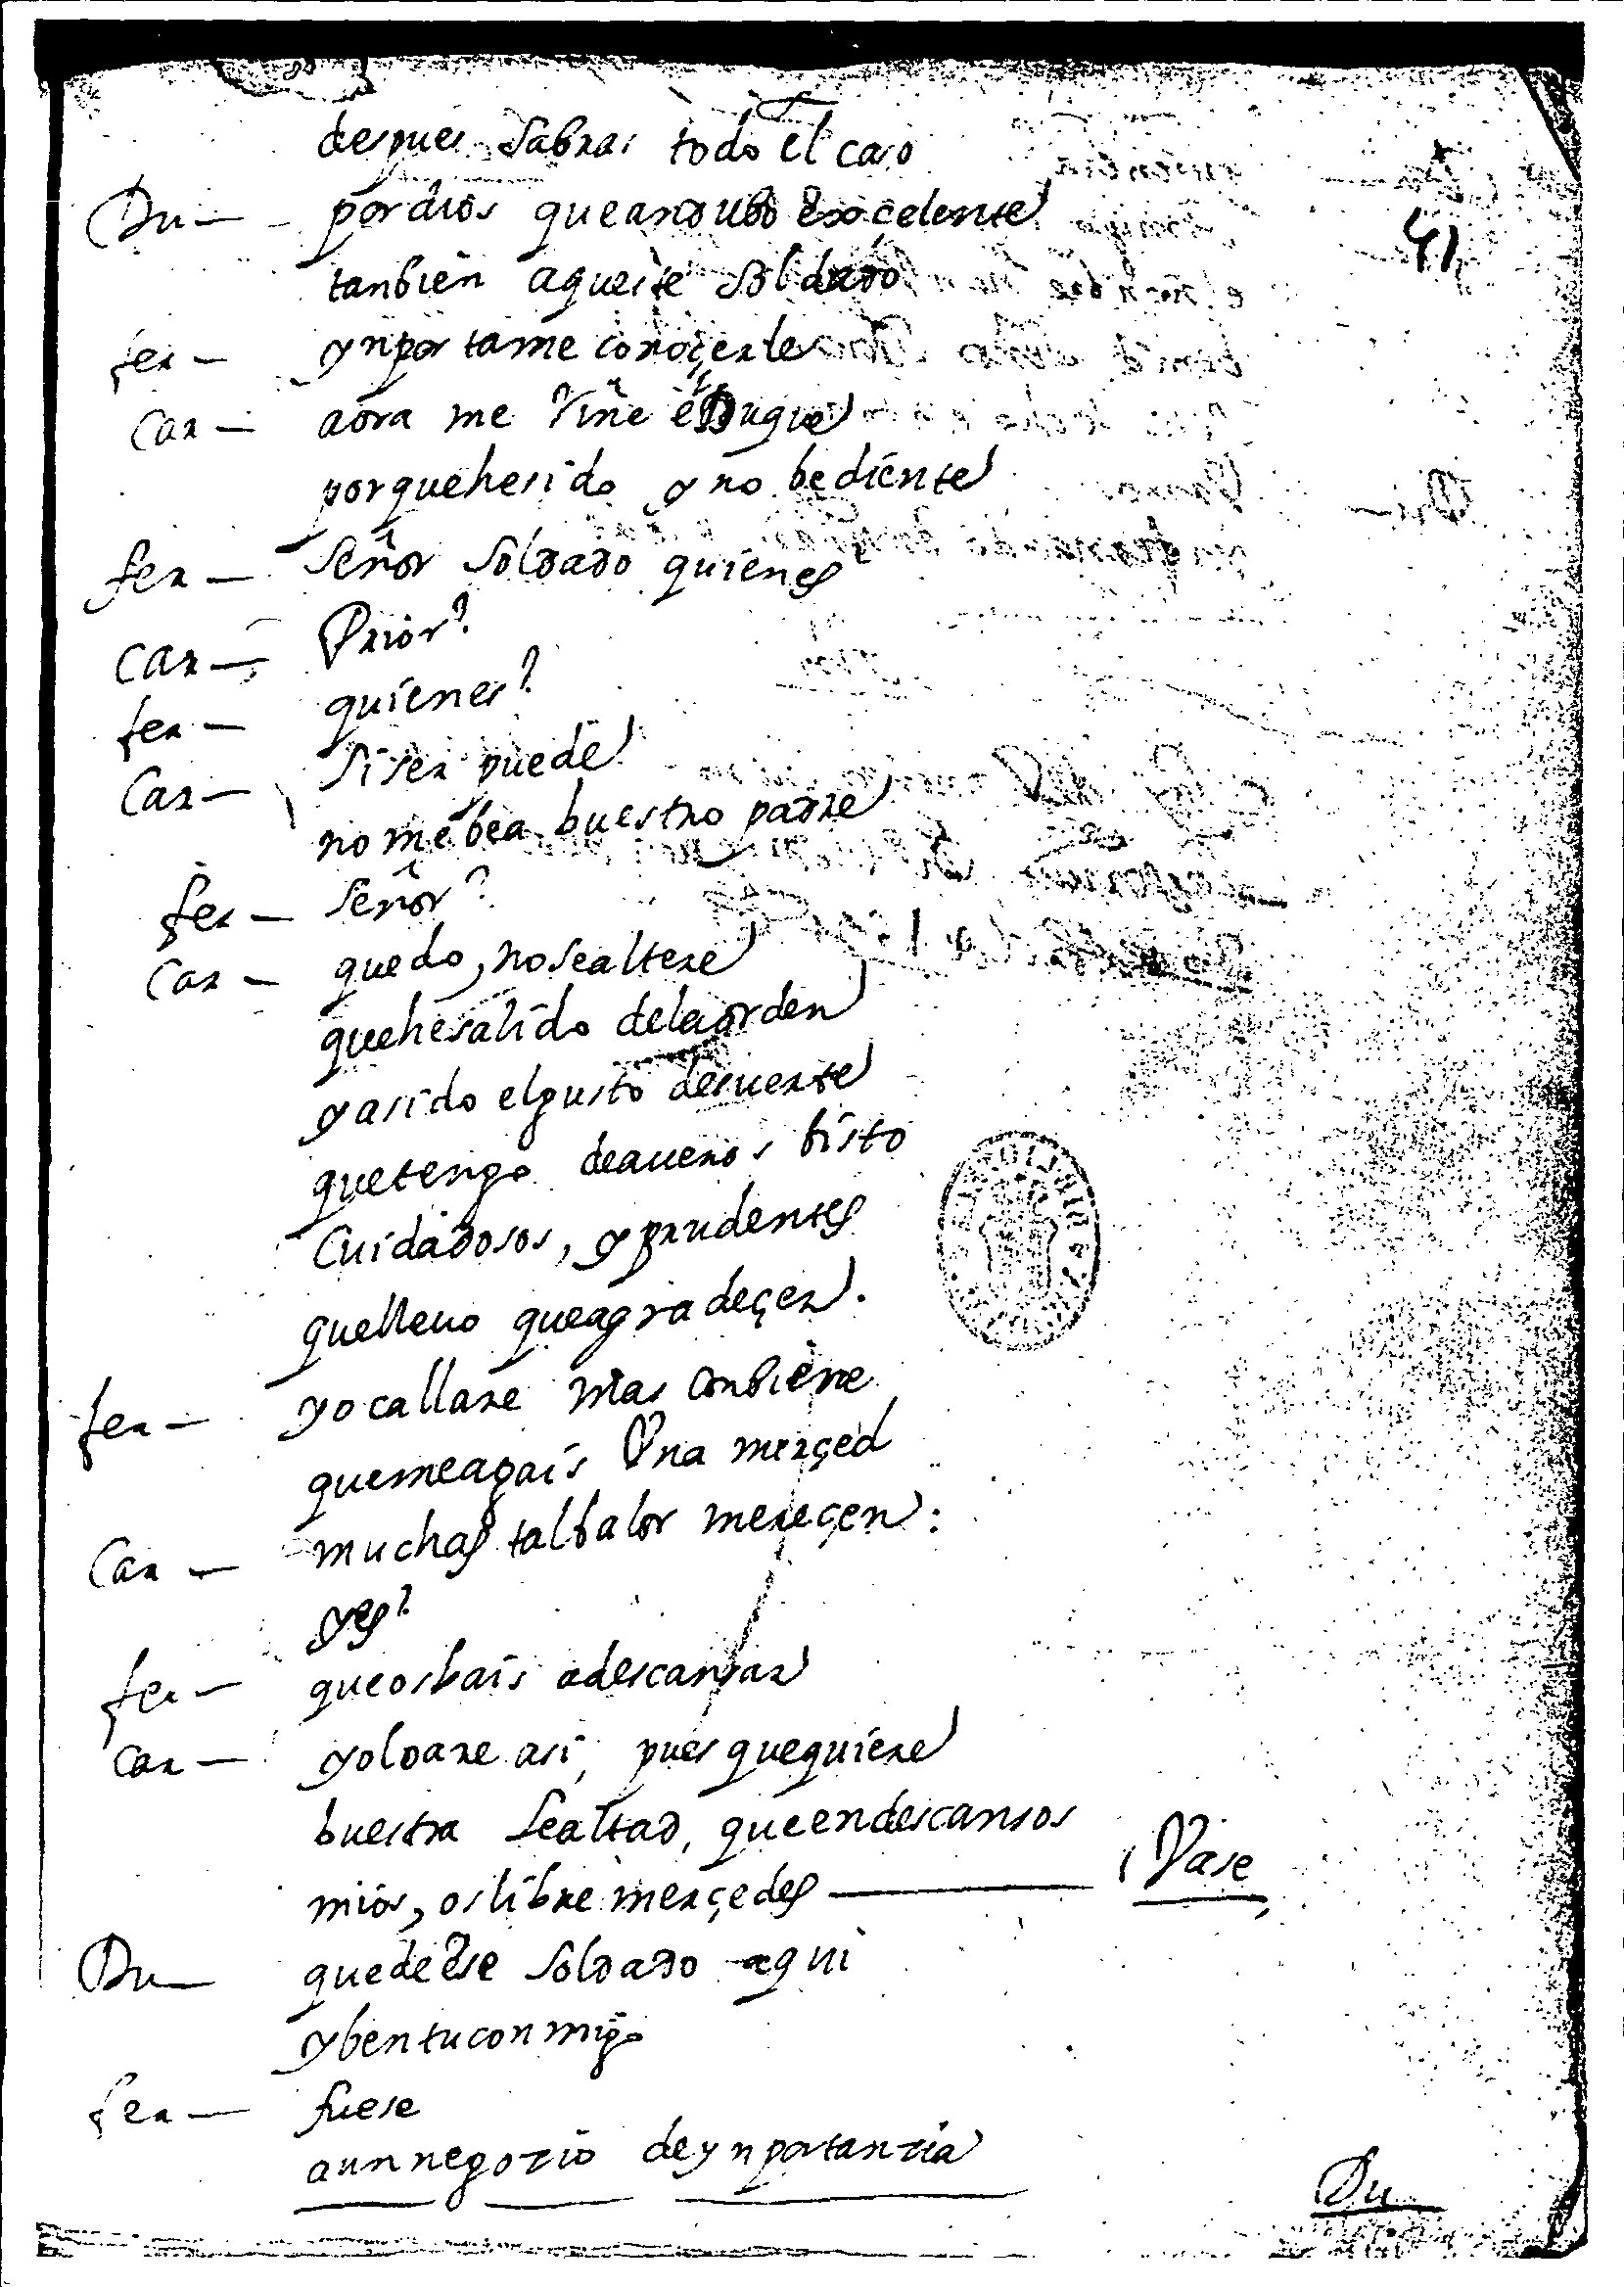 despues sabras todo el caso
41
Du— por dios que andubo excelente
tanbien aqueste soldado
fer— ynportame conoçerle
Car— aora me riñe el Duque
porque he sido ynobediente
fer— señor soldado quien es
Car— Prior?
fer— quien es?
Car— si ser puede
no me bea buestro padre
fer— señor?
Car— quedo, no se altere
que he salido de la orden
y a sido el gusto de suerte
que tengo de aueros bisto
Cuidadosos, y prudentes
que lleuo que agradeçer.
fer— yo callare mas conbiene
que me agais Una merçed
Car— muchas tal balor mereçen:
y es?
fer— que os bais a descansar
Car— yo lo are asi, pues que quiere
buestra lealtad, que en descansos
mios, os libre merçedes — Vase
Du— quedese ese soldado aqui
y ben tu conmigo
fer— fuese
a un negozio de ynportanzia
Du